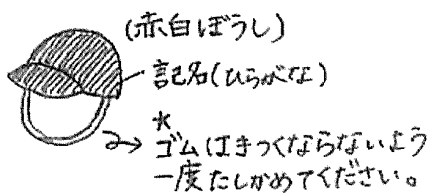 (赤白ぼうし)
記名(ひらがな)
*
ゴムはきつくならないよう
一度たしかめてください。